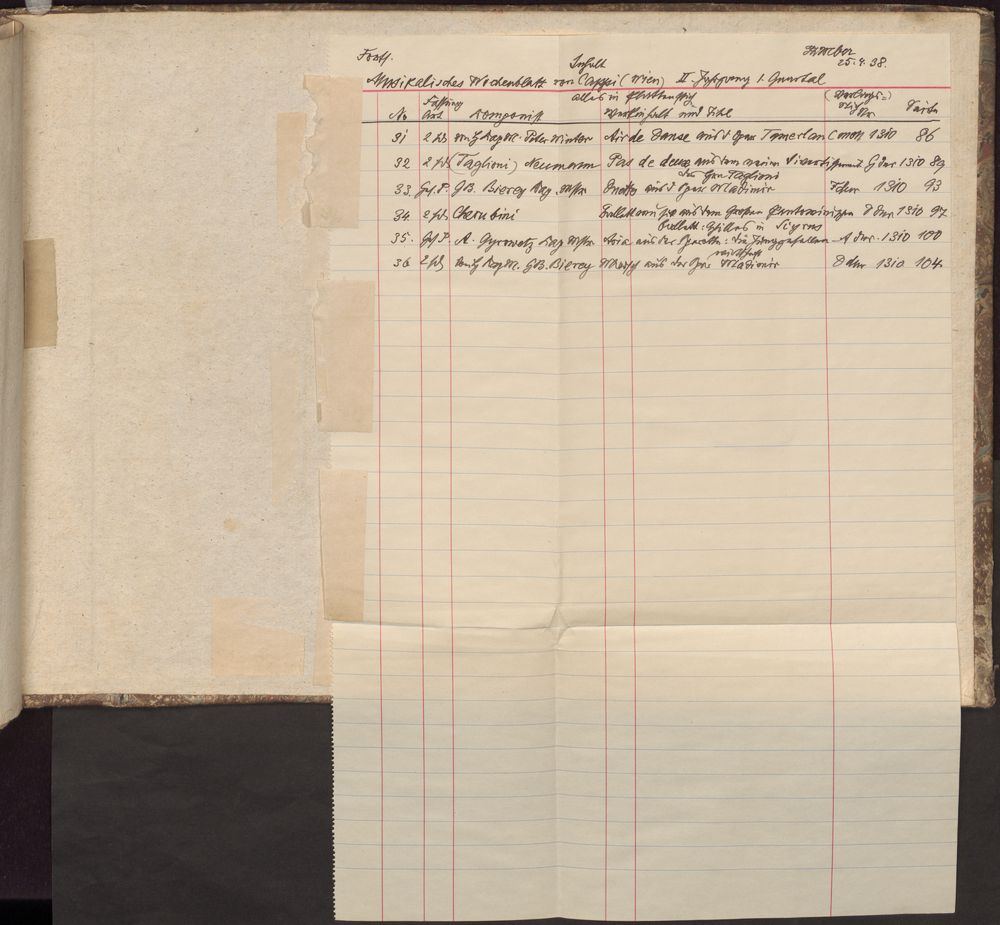 Forts.
Inhalt
25.4.38.
Musikalisches Wochenblatt von Cappi (Wien) II. Jahrgang 1. Quartal
alles in
Fassung
No Art Komponist Titel Nr. Seite
31 2 hd Kapm. Peter Winter Air de Danse aus d Oper Tamerlan C moll 1310 86
32 2 hd (Taglioni) Neumann Pas de deux aus dem neuen Divertissement G dur 1310 89
Taglioni
33. Ges. P. GB. Bierey Kap. Mstr Duetto aus d Oper Wladimir F dur 1310 93
34. 2 hd Cherubini aus dem Großen D dur 1310 97
Ballett: Achilles in Scyros
35. Ges P. A. Gyrowetz Kap Mstr. Aria aus der Operette: die Junggesellen A dur. 1310 100
wirtschaft
36 2 hd Kapm. GB. Bierey Marsch aus der Oper Wladimir D dur 1310 104.